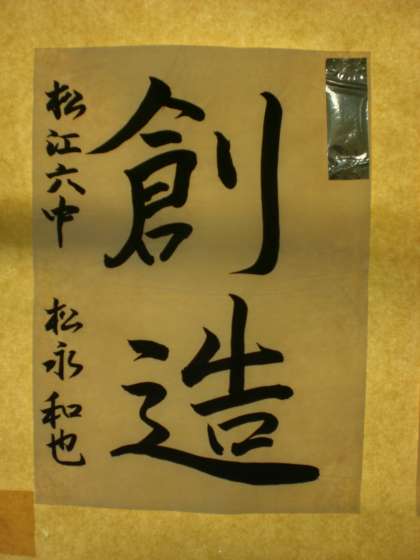 創造
松江六中 松永和也